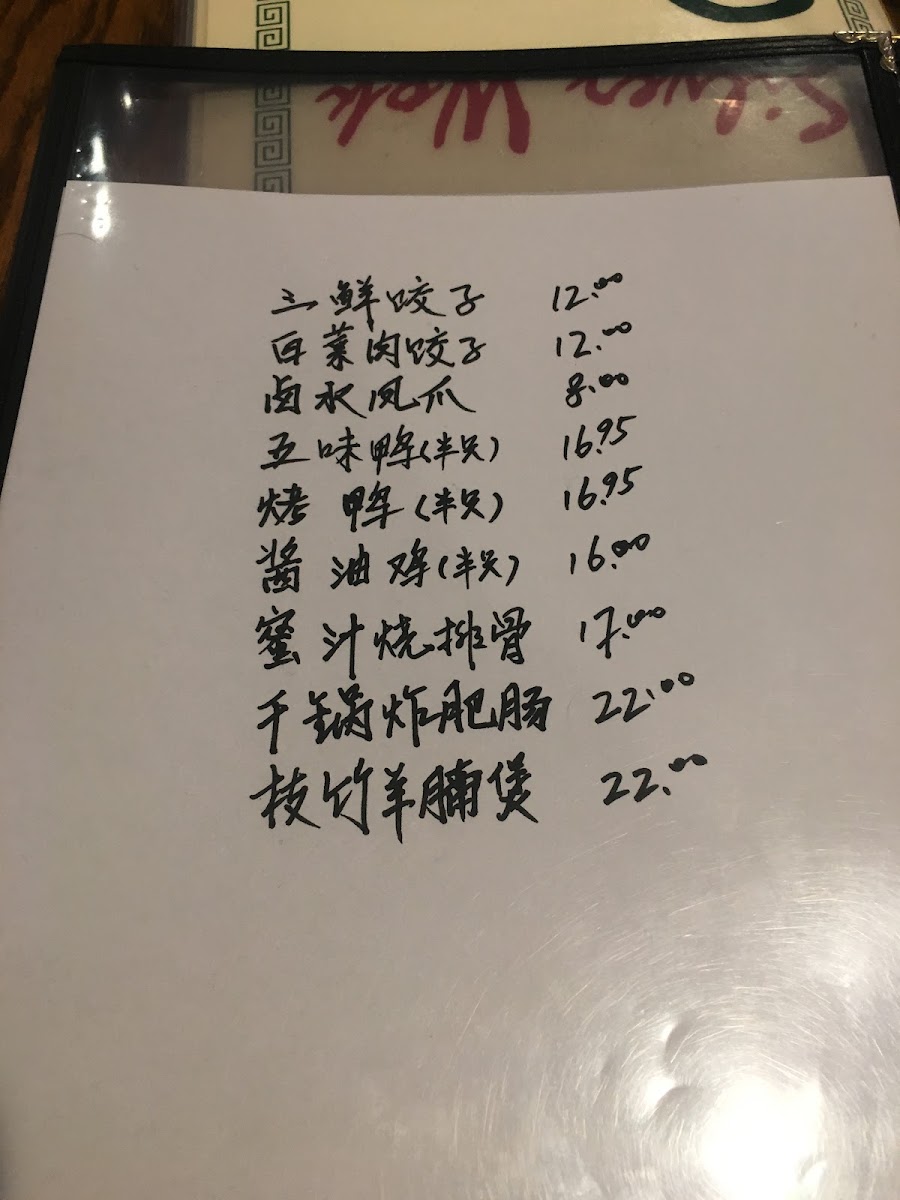 Silver Wok
三鲜饺子 12.00
白菜肉饺子 12.00
卤水凤爪 8.00
五味鸭(半只) 16.95
烤鸭(半只) 16.95
酱油鸡(半只) 16.00
蜜汁烧排骨 17.00
干锅炸肥肠 22.00
枝竹羊腩煲 22.00